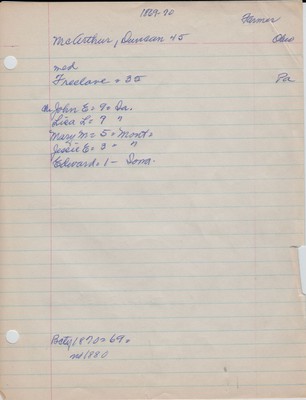 1869-70
Farmer
McArthur, Duncan 45 Ohio
med
Freelove = 35 Pa
ch. John E = 9 = Ia.
Lisa L = 7 "
Mary M = 5 = Mont =
Jessie E = 3 = "
Edward = 1 - Iowa.
Boty 1870 = 69 =
not 1880